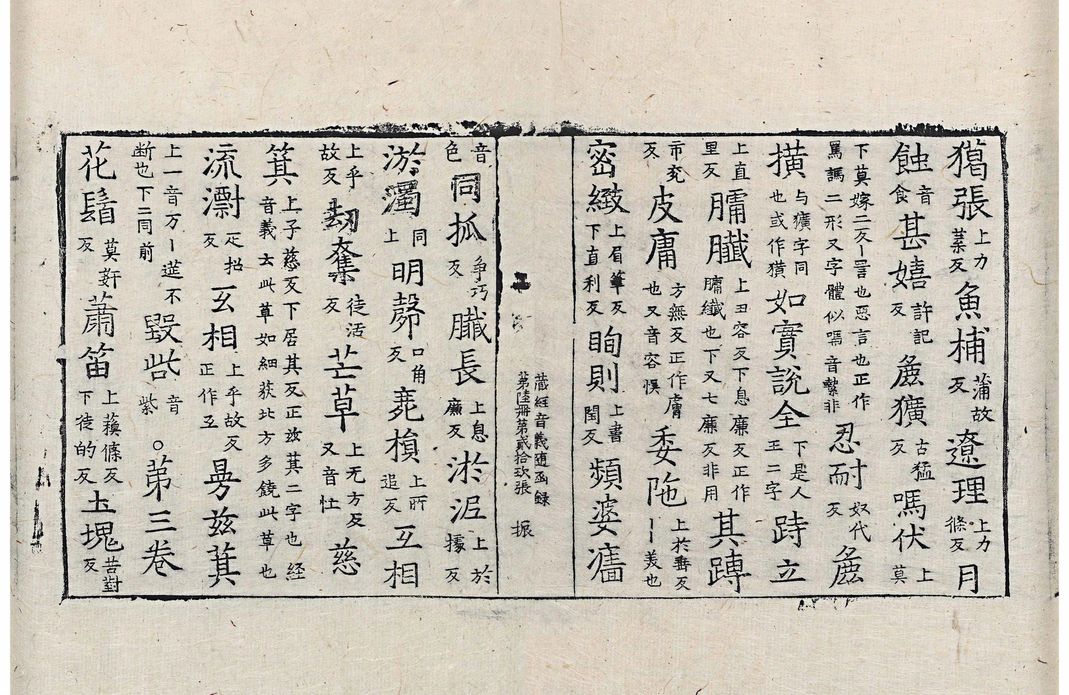 獦張上力葉反魚捕蒲故反遼理上力條反月
蝕音食甚嬉許記反麁獷古猛反嗎伏上莫
下莫嫁二反詈也惡言也正作罵䛢二形又字體似嗎音繫非忍耐奴代反麁
撗与獷字同也或作獚如實說全下是人王二字跱立
上直里反臗膱上丑容反下息廉反正作臗纖也下又七廉反非用其蹲
市兖反皮膚方無反正作膚也又音容悮委陁上於爲反丨丨美也
密緻上眉筆反下直利反眴則上書閏反頻婆㿈
藏經音義隨函録
第陸冊第貳拾玖張 振
音色同抓爭巧反膱長上息廉反淤泥上於據反
淤濁同上明䯨口角反㲠楨上所追反互相
上乎故反刼奪徒活反芒草上无方反又音忙慈
箕上子慈反下居其反正玆其二字也經音義云此草如細荻北方多饒此草也
流澍疋招反互相上乎故反正作互㫄玆萁
上一音方丨莚不断也下二同前毀呰音紫○第三卷
花鬚莫奸反蕭笛上蘓條反下徒的反圡塊苦對反